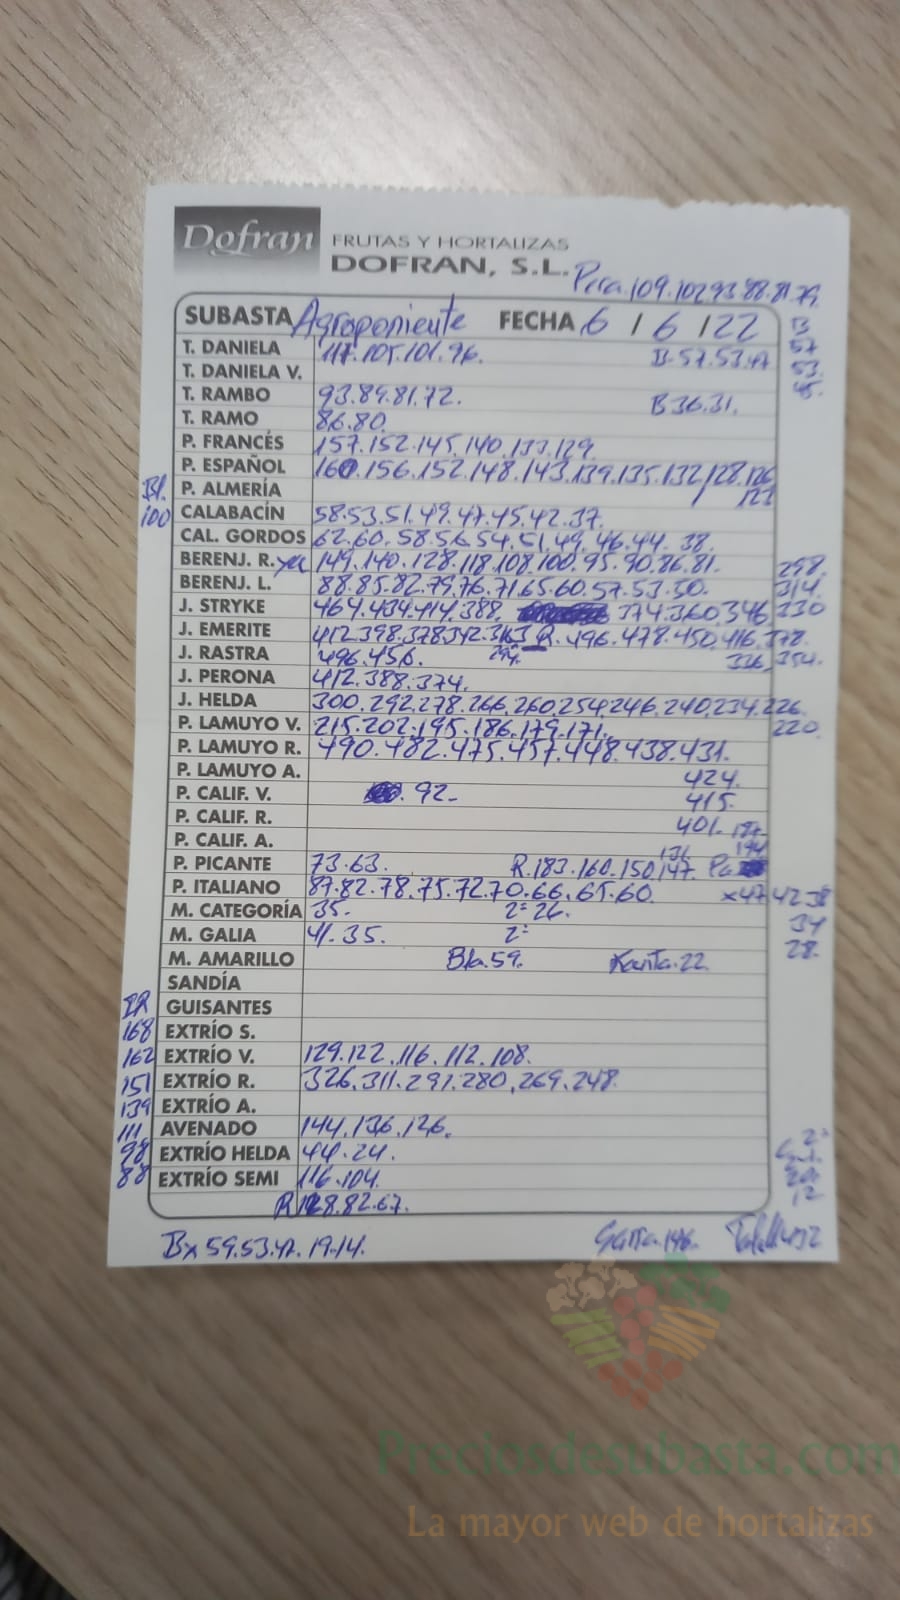 Dofran
FRUTAS Y HORTALIZAS
DOFRAN, S.L.
Pera.109.102.93.88.81.79.
SUBASTA Agroponiente FECHA 6 / 6 / 22
B
57
53.
T. DANIELA 117.105.101.96. B.57.53.47
T. DANIELA V.
T. RAMBO 93.89.81.72. B 36.31.
T. RAMO 86.80.
P. FRANCÉS 157.152.145.140.133.129.
P. ESPAÑOL 160.156.152.148.143.139.135.132/128.126
Bl. P. ALMERÍA
100 CALABACÍN 58.53.51.49.47.45.42.37.
CAL. GORDOS 62.60.58.56.54.51.49.46.44.38.
BERENJ. R. 149.140.128.118.108.100.95.90.86.81. 298.
BERENJ. L. 88.85.82.79.76.71.65.60.57.53.50. 314.
J. STRYKE 464.434.414.388. 374.360.346 330
J. EMERITE 412.398.378.342.313 R.496.478.450.416.378.
J. RASTRA 496.456. 294. 336.354.
J. PERONA 412.388.374.
J. HELDA 300.292.278.266.260.254.246.240.234.226.
P. LAMUYO V. 215.202.195.186.179.171. 220.
P. LAMUYO R. 490.482.475.457.448.438.431.
P. LAMUYO A. 424.
P. CALIF. V. 92- 415.
P. CALIF. R. 401.
P. CALIF. A. 131
P. PICANTE 73.63. R.183.160.150.147.
P. ITALIANO 87.82.78.75.72.70.66.65.60. x47.42.38
M. CATEGORÍA 35. 2ª 26. 34
M. GALIA 41.35. 2ª 28.
M. AMARILLO Bla.59. 22.
SANDÍA
GUISANTES
168 EXTRÍO S.
162 EXTRÍO V. 129.122.116.112.108.
151 EXTRÍO R. 326.311.291.280.269.248.
139 EXTRÍO A.
111 AVENADO 144.136.126.
98 EXTRÍO HELDA 44.24. 2ª
88 EXTRÍO SEMI 116.104.
R 128.82.67. 12
Bx 59.53.47.19.14.
Preciosdesubasta.com
La mayor web de hortalizas